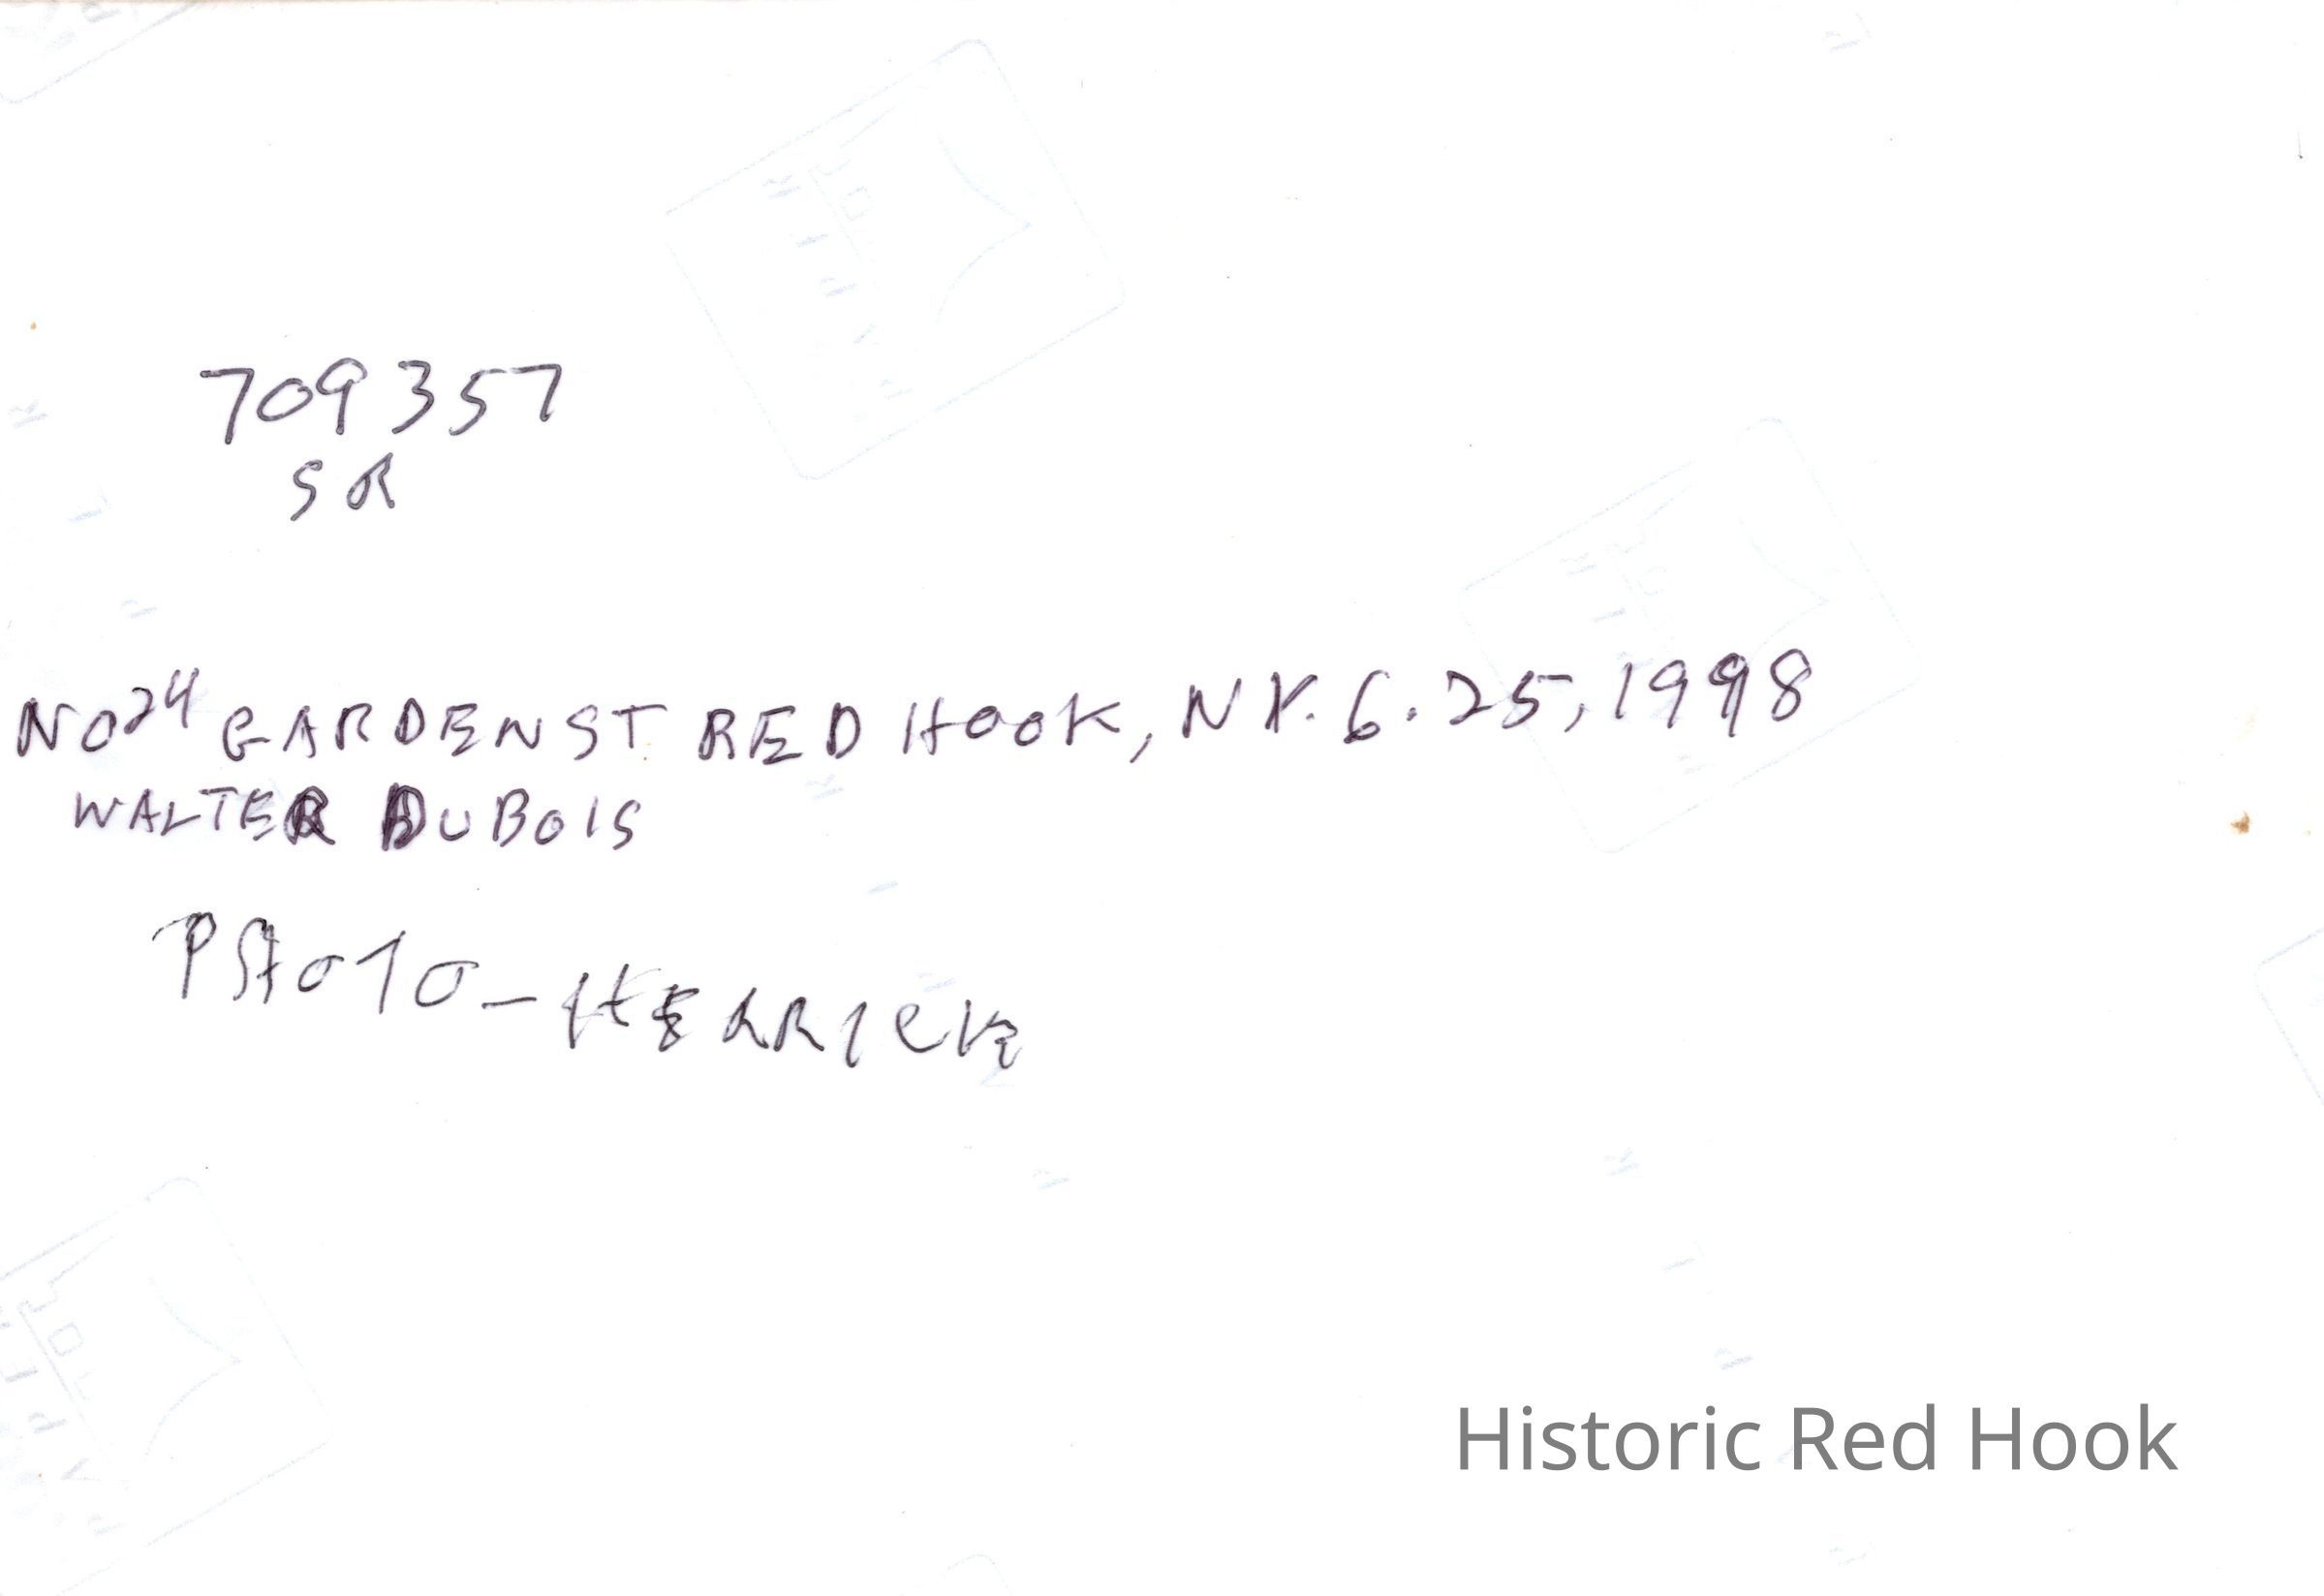 709357
SR
NO 24 GARDEN ST RED HOOK, NY. 6.25,1998
WALTER DUBOIS
PHOTO - HERRICK
Historic Red Hook